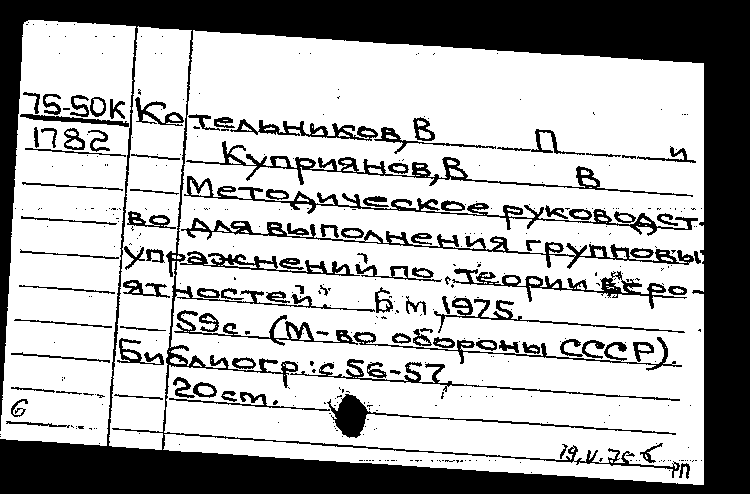 75-50К Котельников, В П и
1782 Куприянов, В В
Методическое руководст-
во для выполнения групповы
упражнений по „теории веро-
ятностей". Б.м., 1975.
59с. (М-во обороны СССР).
Библиогр.: с.56-57,
20 см.
6
19.V.75
РП